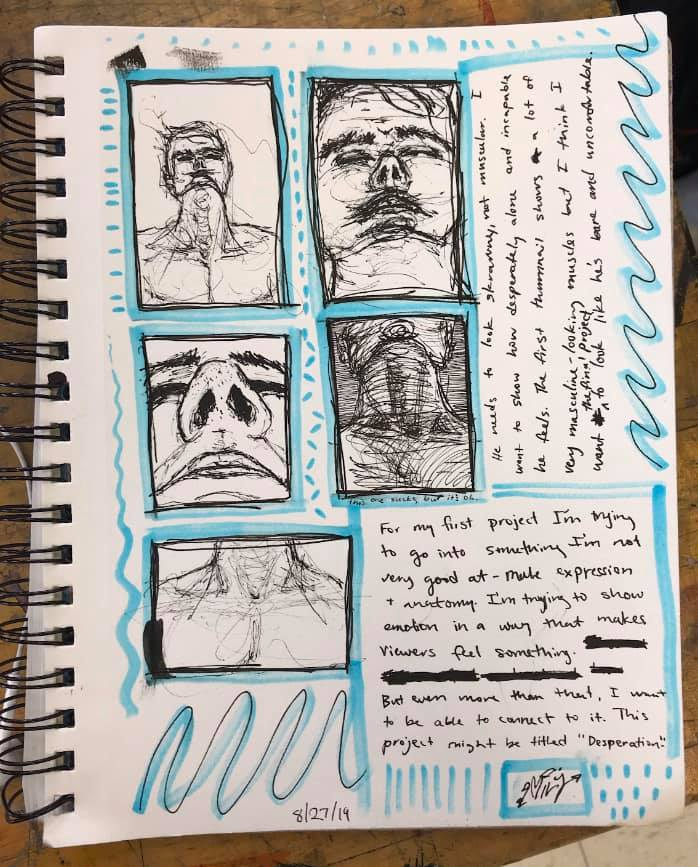 He needs to look skrawny, not muscular. I
want to show how desperately alone and incapable
he feels. The first thumnail shows a lot of
very masculine-looking muscles but I think I
want the final project to look like hes bare and uncomfortable.
This one sucks, but it's ok.
For my first project I'm trying
to go into something I'm not
very good at - male expression
+ anatomy. I'm trying to show
emotion in a way that makes
viewers feel something.
But even more than that, I want
to be able to connect to it. This
project might be titled "Desperation"
8/27/19